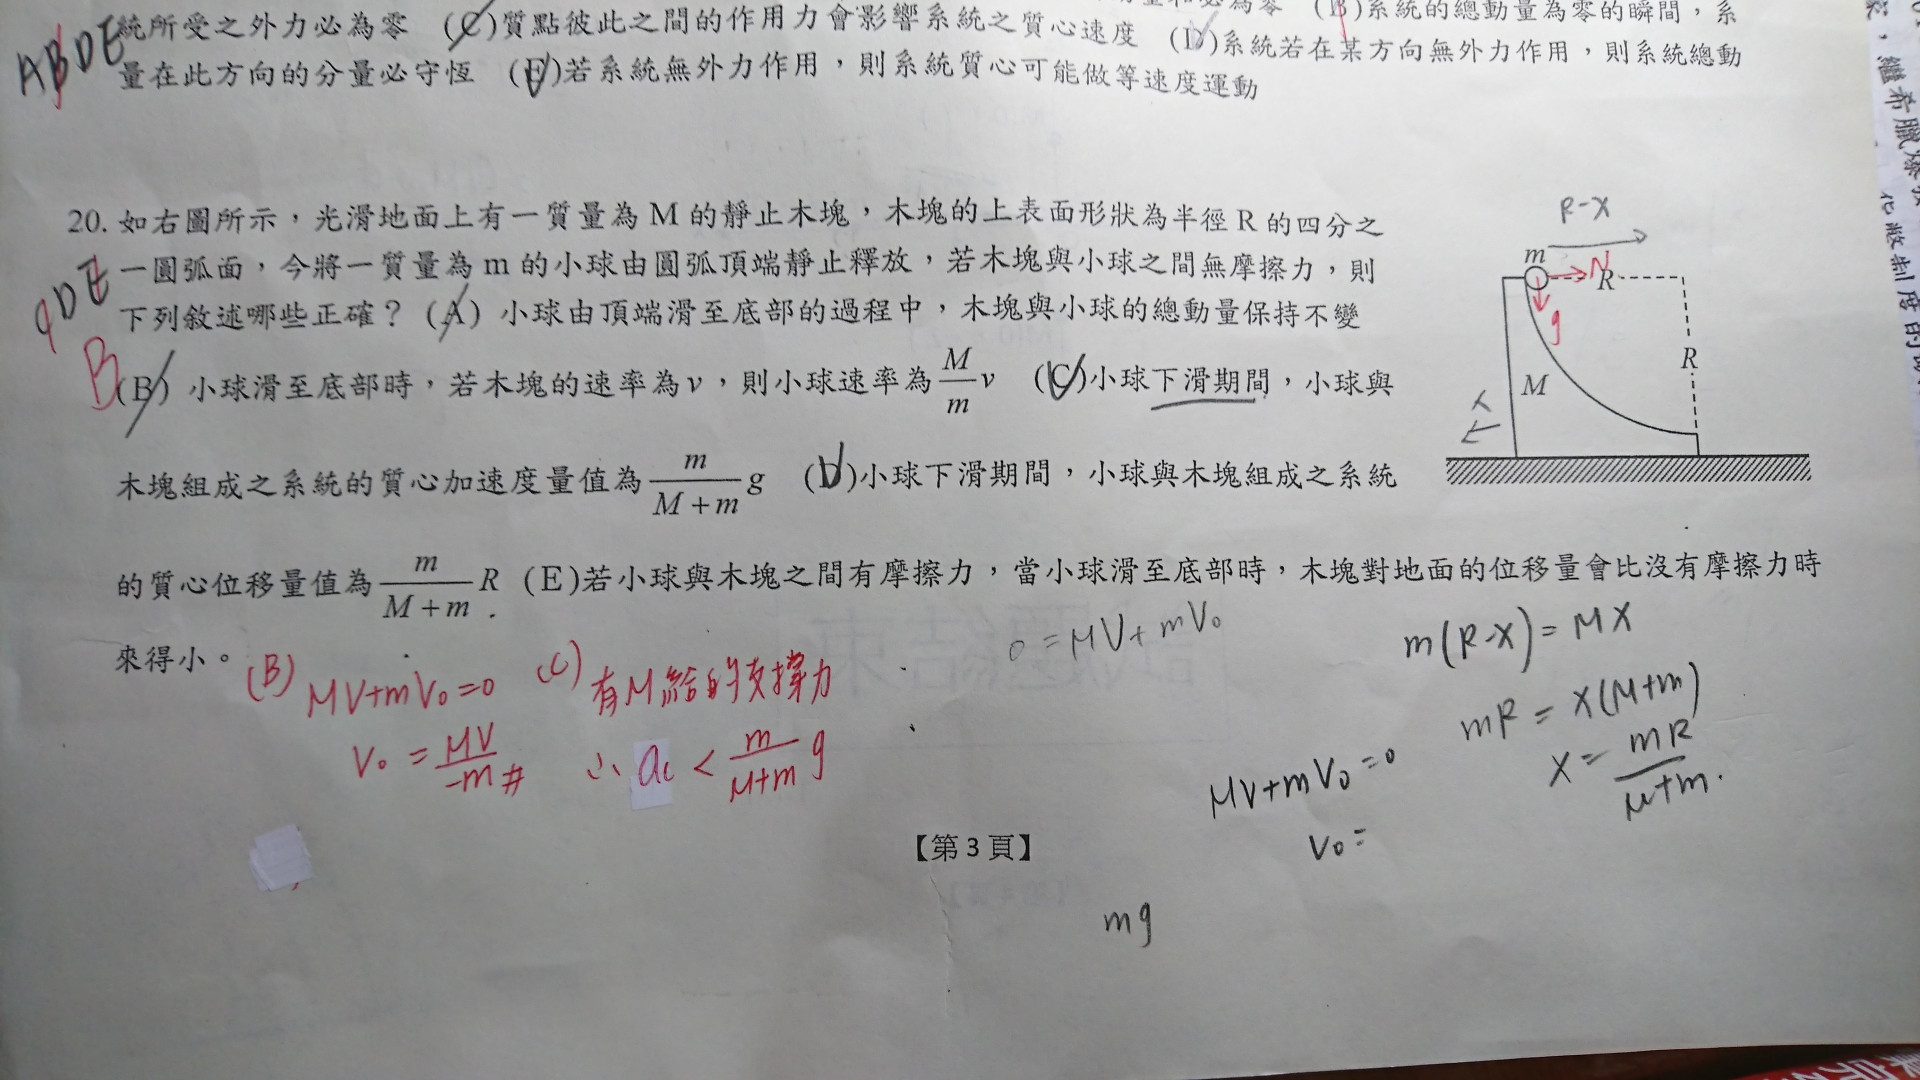 統所受之外力必為零 (C)質點彼此之間的作用力會影響系統之質心速度 (D)系統若在某方向無外力作用,則系統總動
(B)系統的總動量為零的瞬間,系
ABDE
量在此方向的分量必守恆 (E)若系統無外力作用,則系統質心可能做等速度運動
20. 如右圖所示,光滑地面上有一質量為 M 的靜止木塊,木塊的上表面形狀為半徑 R 的四分之
一圓弧面,今將一質量為 m 的小球由圓弧頂端靜止釋放,若木塊與小球之間無摩擦力,則
下列敘述哪些正確?(A) 小球由頂端滑至底部的過程中,木塊與小球的總動量保持不變
(B) 小球滑至底部時,若木塊的速率為 v,則小球速率為 M/m v (C)小球下滑期間,小球與
木塊組成之系統的質心加速度量值為 m/M+m g (D)小球下滑期間,小球與木塊組成之系統
的質心位移量值為 m/M+m R (E)若小球與木塊之間有摩擦力,當小球滑至底部時,木塊對地面的位移量會比沒有摩擦力時
來得小。
DE
B
R-X
m
N
R
g
R
M
X
(B) MV+mV₀=0
V₀ = MV/-m #
(C) 有M給的支撐力
∴ ac < m/M+m g
0 = MV+mV₀
m(R-X) = MX
mR = X(M+m)
X = mR/M+m.
MV+mV₀=0
V₀=
【第 3 頁】
mg